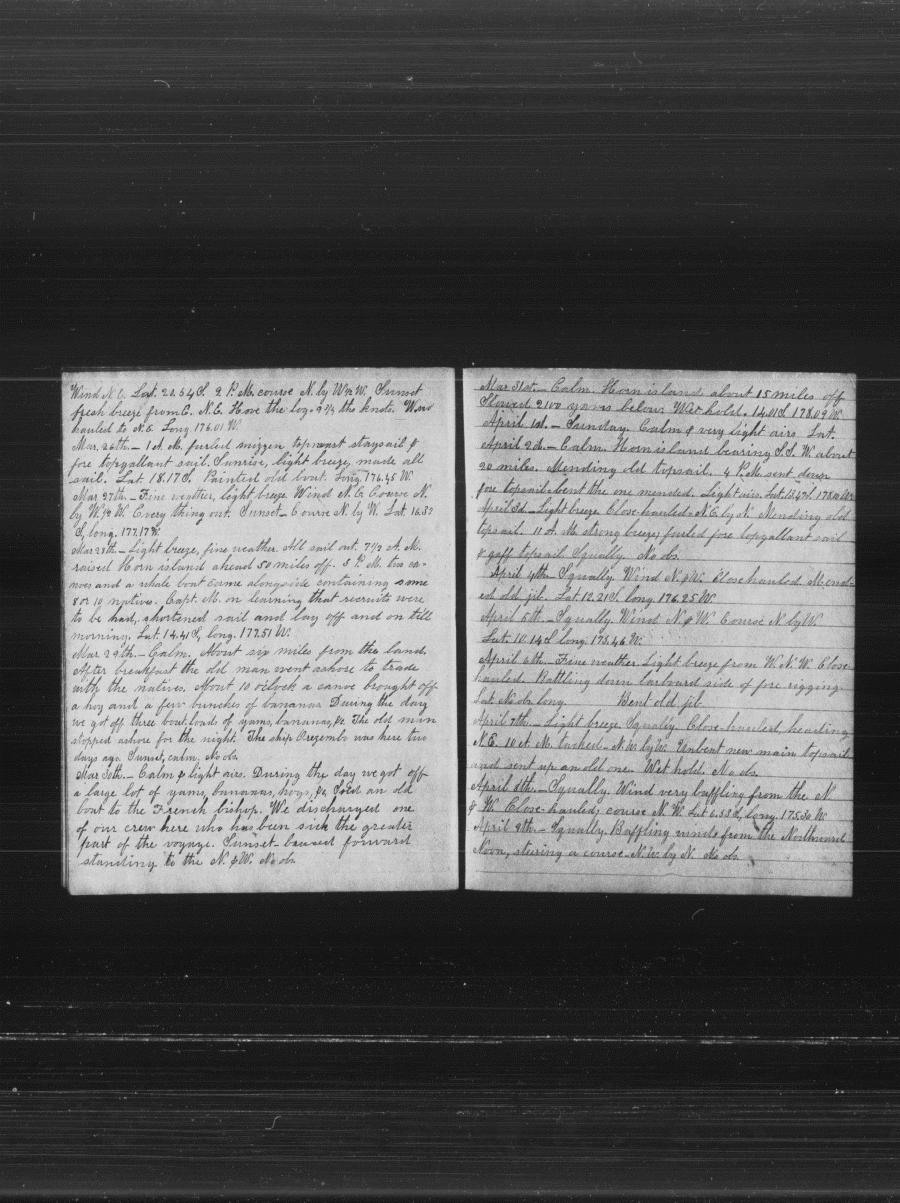 Wind N.E. Lat. 20.54 S. 2 P.M. course N. by W½W. Sunset
fresh breeze from E. N.E. Hove the log. 9¾ ths knots. Wind
hauled to N.E. Long 176.01 W.
Mar. 26th. – 1 A.M. furled mizzen topmast staysail &
fore topgallant sail. Sunrise, light breeze, made all
sail. Lat 18.17 S. Painted old boat. Long 176.45 W.
Mar 27th. – Fine weather, light breeze. Wind N.E. Course N.
by W.½ W. Every thing out. Sunset – Course N. by W. Lat 16.37
S, long. 177.17 W.
Mar 28th. – Light breeze, fine weather. All sail out. 7½ A.M.
raised Horn island ahead 50 miles off. 5 P.M. two ca-
noes and a whale boat came alongside containing some
8 or 10 natives. Capt. M. on learning that recruits were
to be had, shortened sail and lay off and on till
morning. Lat. 14.41 S, long. 177.51 W.
Mar 29th. – Calm. About six miles from the land.
After breakfast the old man went ashore to trade
with the natives. About 10 o'clock a canoe brought off
a hog and a few bunches of bananas. During the day
we got off three boat-loads of yams, bananas, &c. The old man
stopped ashore for the night. The ship Orozimbo was here two
days ago. Sunset, calm. No ob.
Mar 30th. – Calm & light airs. During the day we got off
a large lot of yams, bananas, hogs, &c. Sold an old
boat to the French bishop. We discharged one
of our crew here who has been sick the greater
part of the voyage. Sunset – braced forward
standing to the N. & W. No ob.
Mar 31st. – Calm. Horn island about 15 miles off
Stowed 2100 yams below. Wet hold. 14.01 S 178.09 W.
April 1st. – Sunday. Calm & very light airs. Lat.
April 2d. – Calm. Horn island bearing S.S.W. about
20 miles. Mending old topsail. 4 P.M. sent down
fore topsail – bent the one mended. Light airs. Lat. 13.47 S. 178.10 W.
April 3d. – Light breeze. Close-hauled – N.E. by N. Mending old
topsail. 11 A.M. strong breeze, furled fore topgallant sail
& gaff topsail. Squally. No ob.
April 4th. – Squally. Wind N. & W. Close hauled. Mend-
ed old jib. Lat 12.21 S. long. 176.25 W.
April 5th. – Squally. Wind N. & W. Course N. by W.
Lat. 10.14 S long. 175.46 W.
April 6th. – Fine weather. Light breeze from W. N. W. Close-
hauled. Rattling down larboard side of fore rigging.
Lat No ob. long. Bent old jib.
April 7th. – Light breeze. Squally. Close-hauled, heading
N.E. 10 A.M. tacked – N.W. by W. Unbent new main topsail
and sent up an old one. Wet hold. No ob.
April 8th. – Squally. Wind very baffling from the N
& W. Close-hauled; course N.W. Lat 6.53 S, long. 175.50 W.
April 9th. – Squally. Baffling winds from the Northward
Noon, steering a course – N.W. by N. No ob.